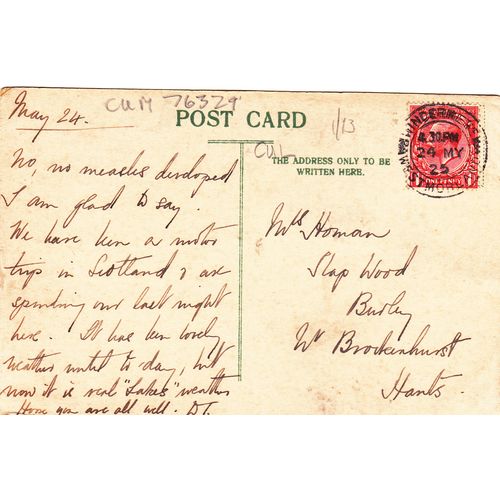 May 24.
CUM 76329
1/13
POST CARD
THE ADDRESS ONLY TO BE
WRITTEN HERE.
WINDERMERE
4.30 PM
24 MY
25
WESTMORLAND
ONE PENNY
No, no measles developed
I am glad to say.
We have been a motor
trip in Scotland & are
spending our last night
here. It has been lovely
weather until to day, but
now it is real "Lakes" weather
Hope you are all well. D.T.
Mrs Homan
Slap Wood
Burley
Nr Brockenhurst
Hants.